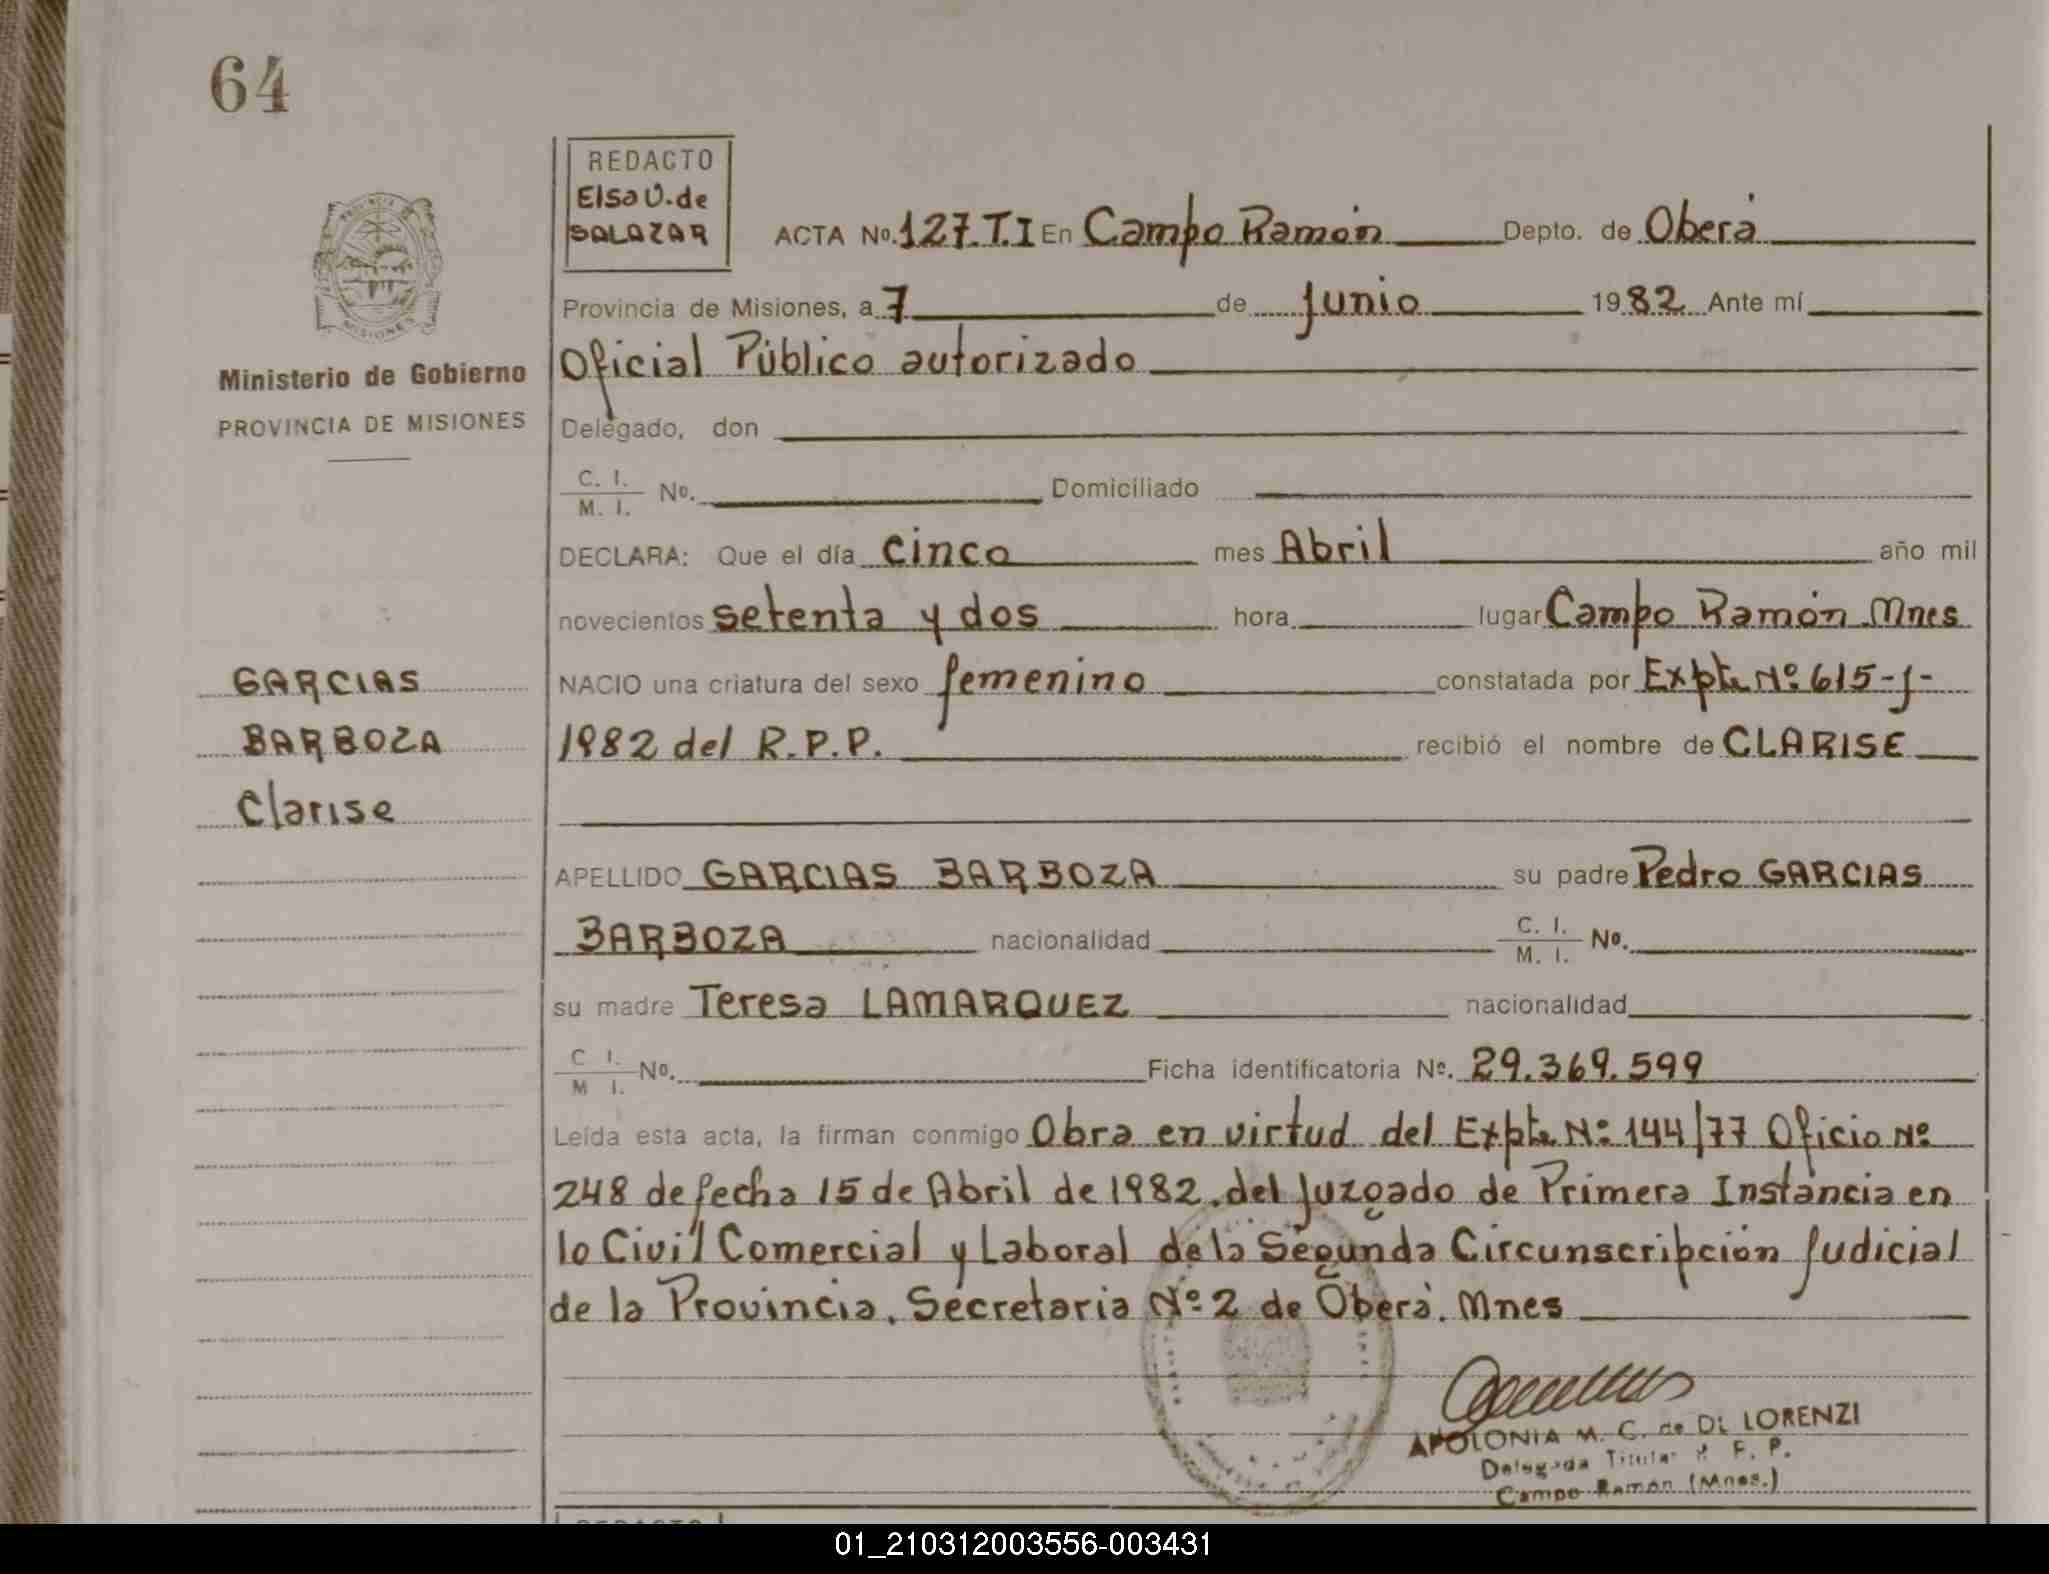 64
REDACTO
Elsa V. de
SALAZAR
ACTA No. 127. T. I En Campo Ramón Depto. de Oberá
Provincia de Misiones, a 7 de Junio 1982 Ante mí
Oficial Público autorizado
Delegado, don
C. I.
M. I. No. Domiciliado
DECLARA: Que el día cinco mes Abril año mil
novecientos setenta y dos hora lugar Campo Ramón. Mnes
NACIO una criatura del sexo femenino constatada por Expte Nº 615-J-
1982 del R.P.P. recibió el nombre de CLARISE
APELLIDO GARCIAS BARBOZA su padre Pedro GARCIAS
BARBOZA nacionalidad C. I.
M. I. No.
su madre Teresa LAMARQUEZ nacionalidad
C I.
M I. No. Ficha identificatoria No. 29.369.599
Leída esta acta, la firman conmigo Obra en virtud del Expte Nº 144/77 Oficio Nº
248 de fecha 15 de Abril de 1982. del Juzgado de Primera Instancia en
lo Civil Comercial y Laboral de la Segunda Circunscripción Judicial
de la Provincia. Secretaria Nº 2 de Oberá. Mnes
PROVINCIA DE
MISIONES
Ministerio de Gobierno
PROVINCIA DE MISIONES
GARCIAS
BARBOZA
Clarise
APOLONIA M. C. de DI LORENZI
Delegada Titular P. P.
Campo Ramón (Mnes.)
REDACTO
01_210312003556-003431